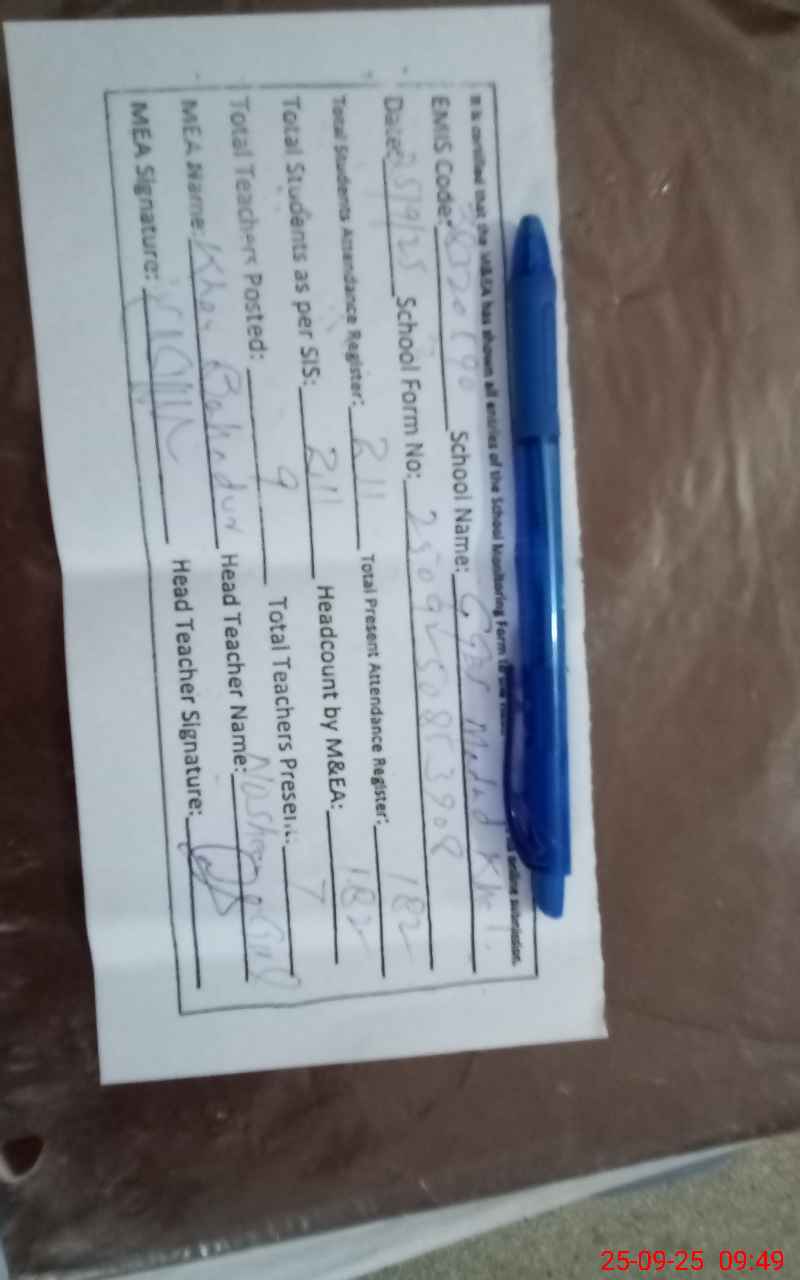 It is certified that the M&EA has shown all entries of the School Monitoring Form online submission.
EMIS Code: School Name: Ggps
Date: 25/9/25 School Form No:
Total Students Attendance Register: 211 Total Present Attendance Register: 182
Total Students as per SIS: 211 Headcount by M&EA: 182
Total Teachers Posted: 9 Total Teachers Present: 7
MEA Name: Khan Bahadur Head Teacher Name:
MEA Signature: Head Teacher Signature:
25-09-25 09:49